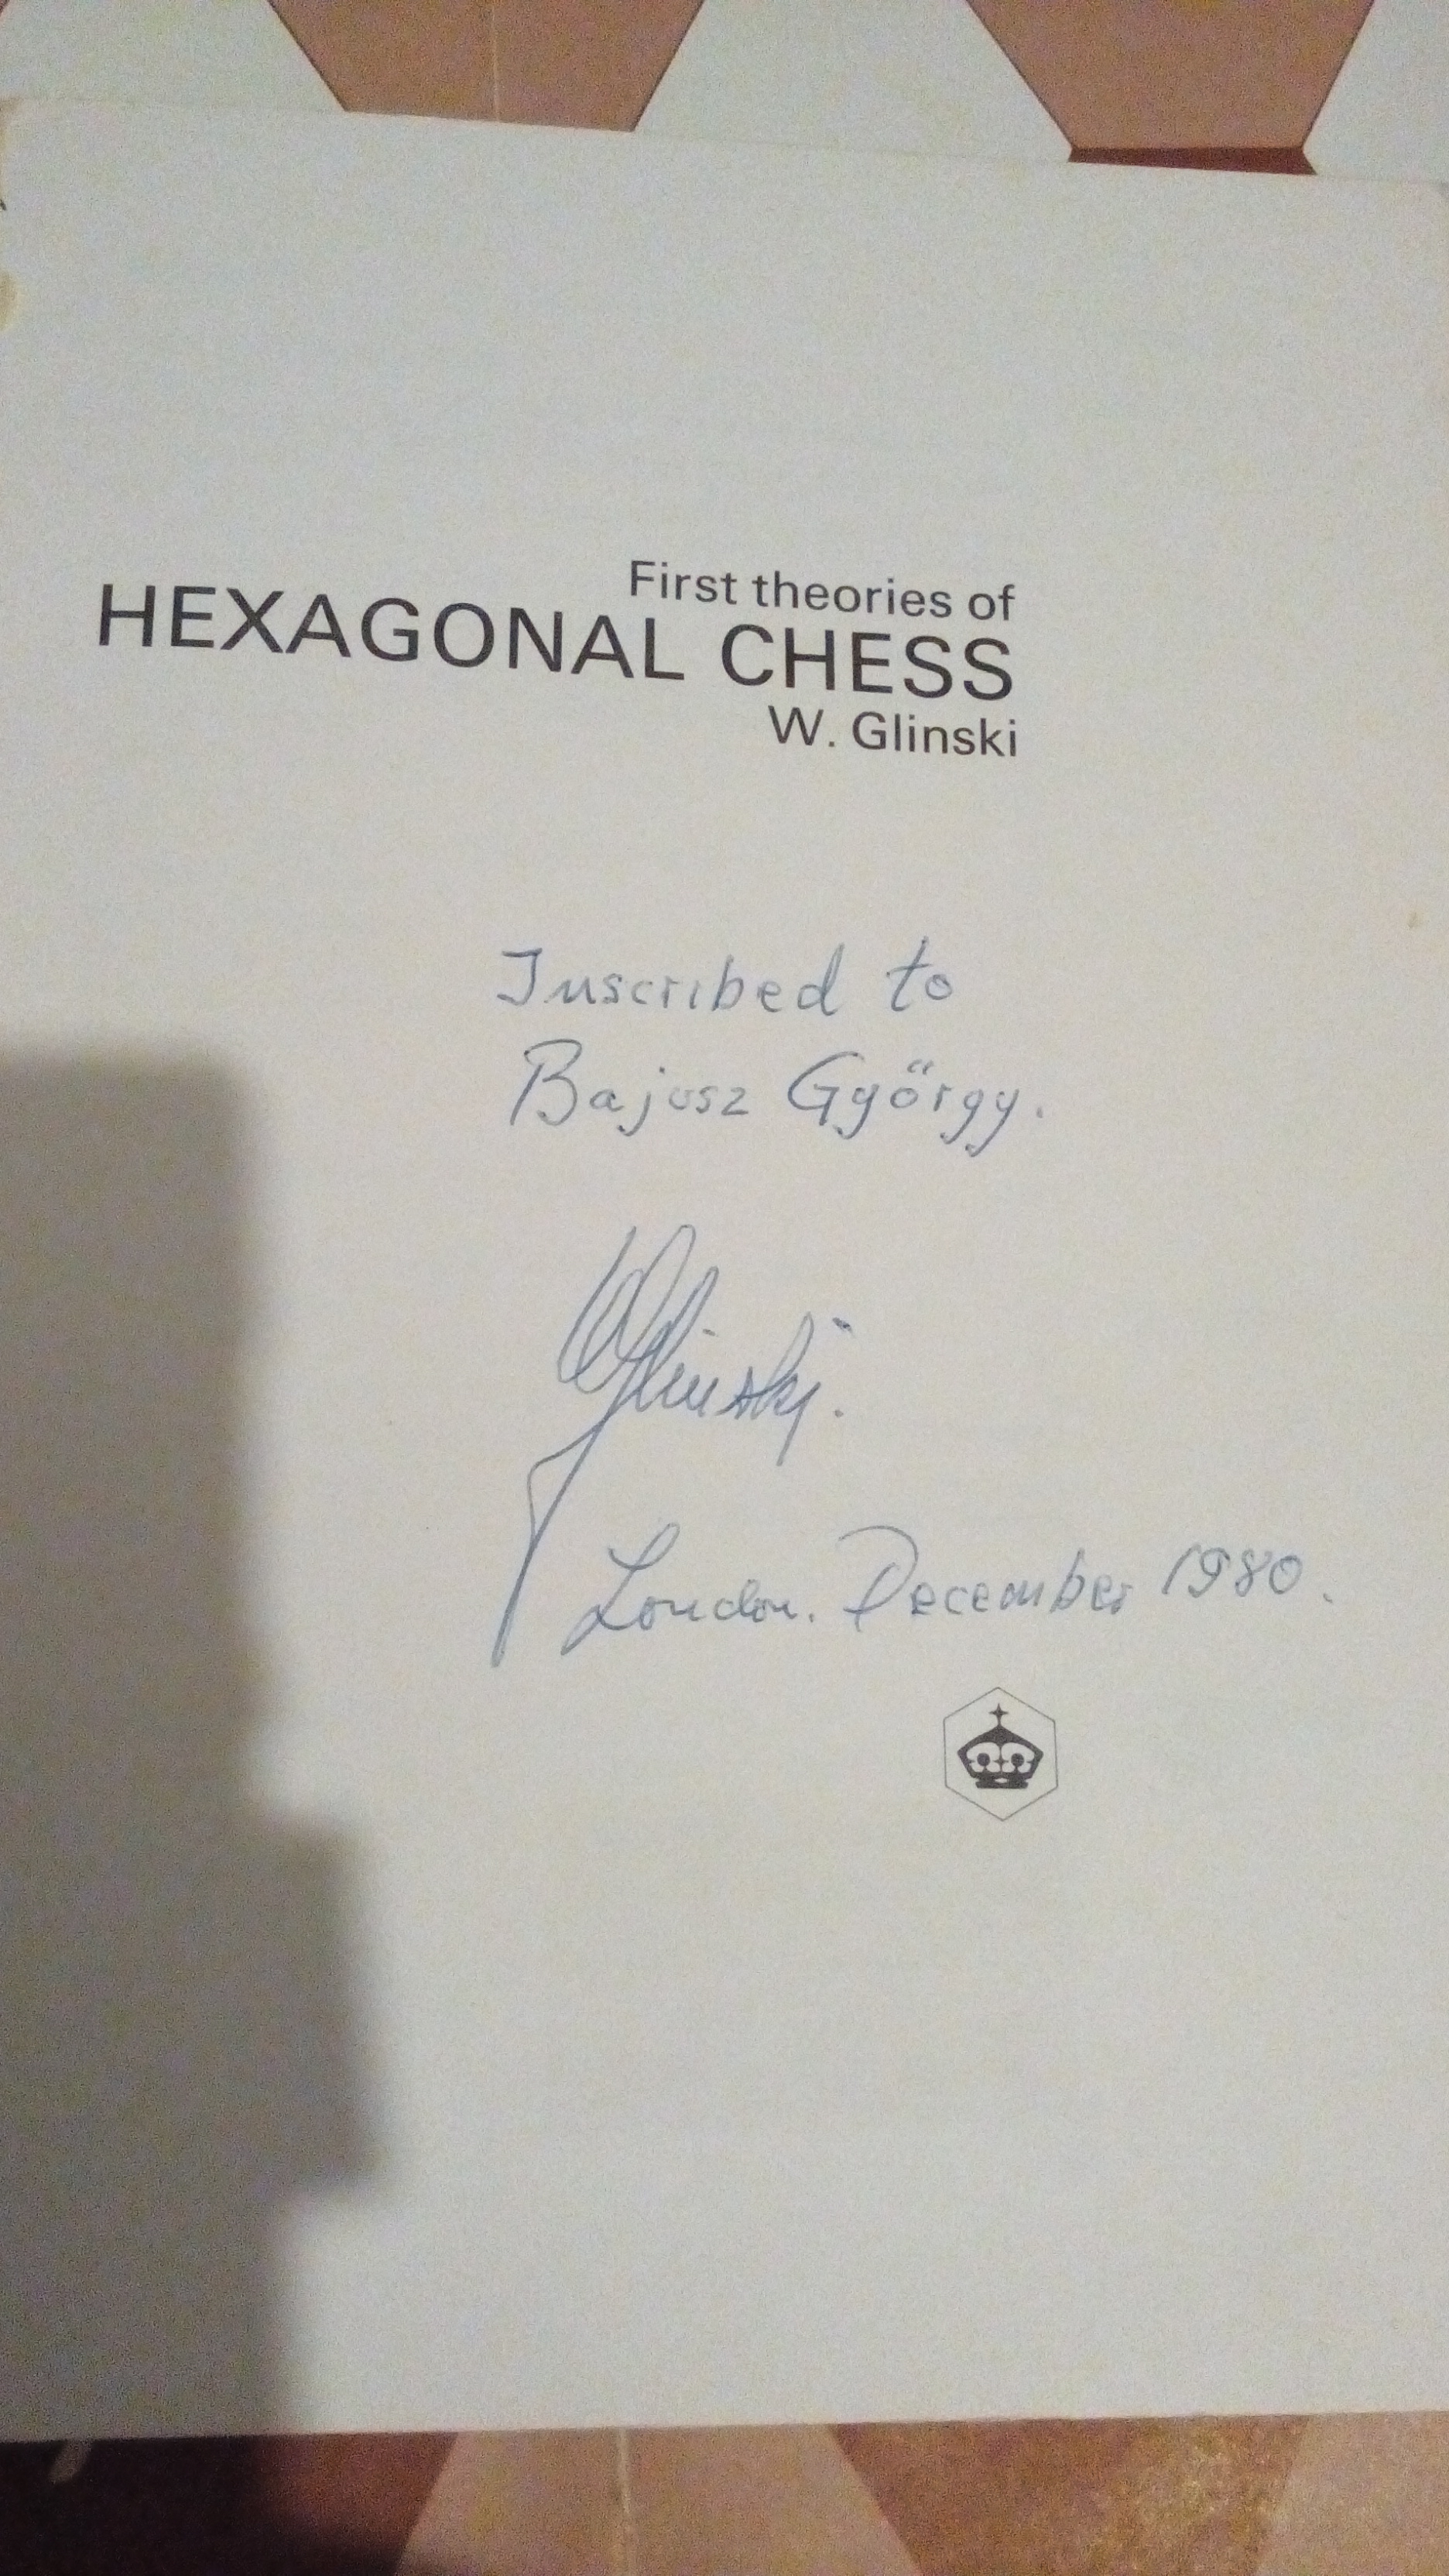 First theories of
HEXAGONAL CHESS
W. Glinski
Inscribed to
Bajusz György.
WGlinski.
London. December 1980.